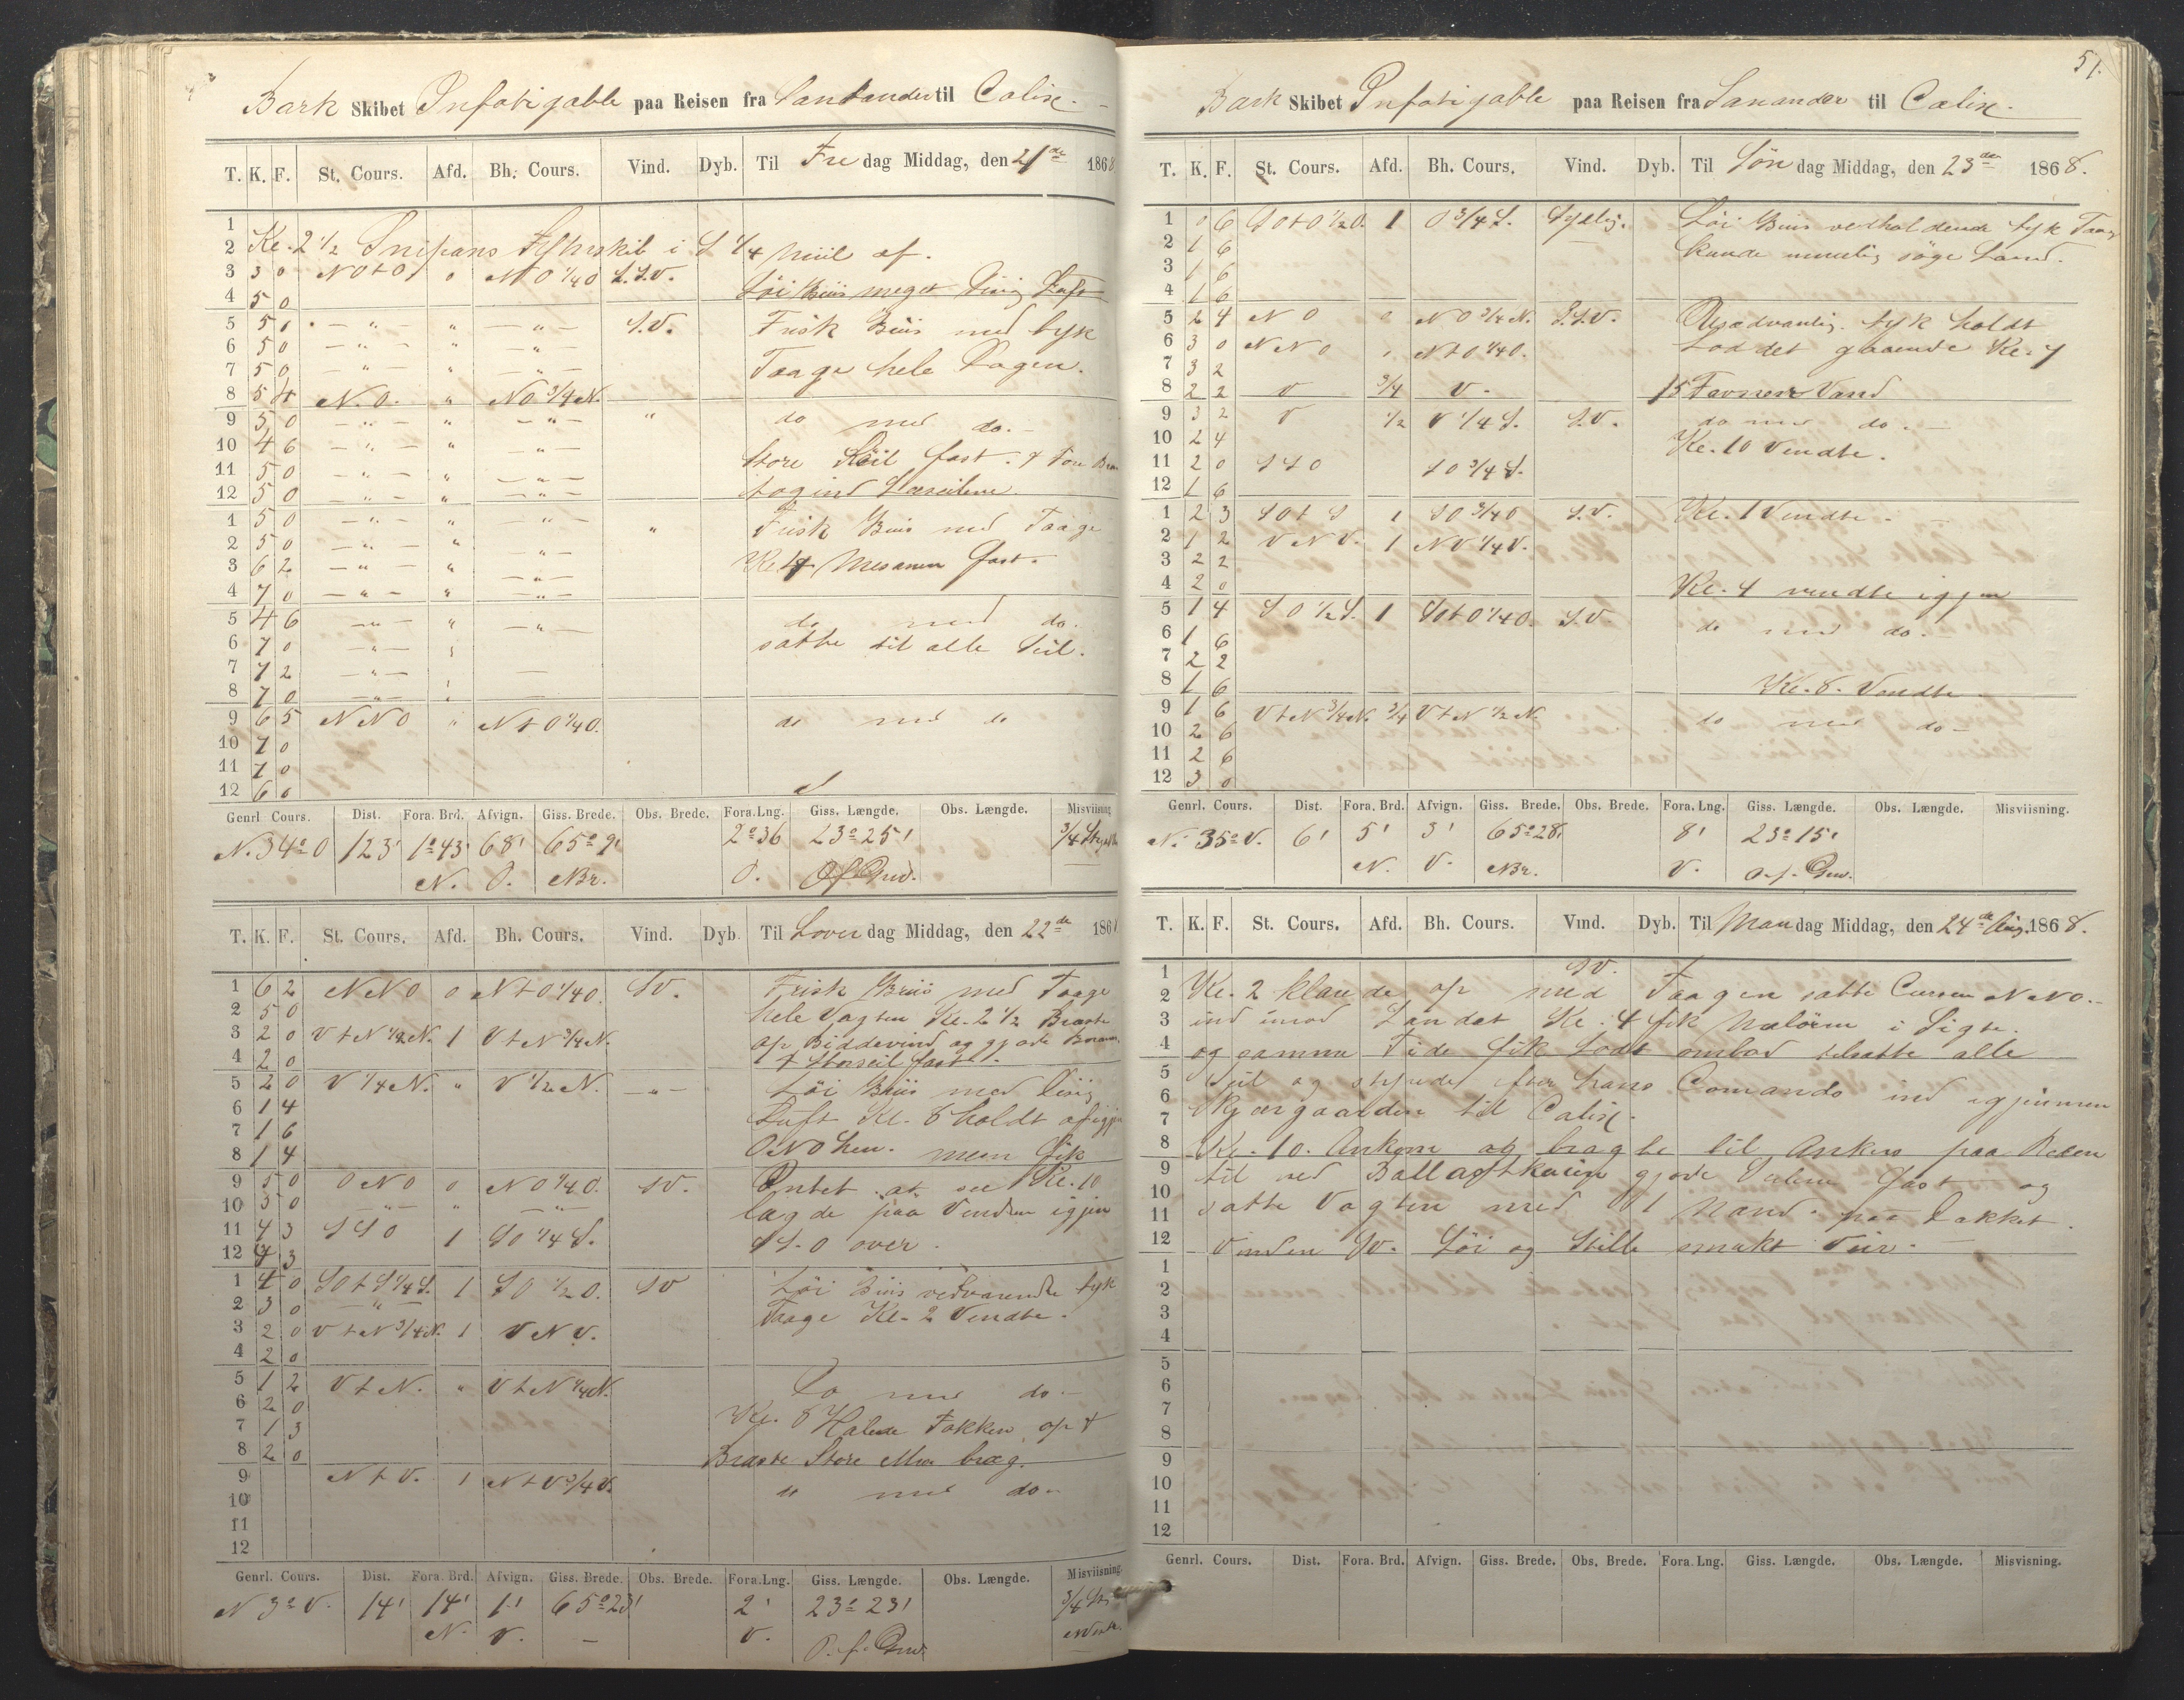 Bark Skibet Infatigable paa Reisen fra Santander til Calix.
T. K. F. St. Cours. Afd. Bh. Cours. Vind. Dyb. Til Fredag Middag, den 21de 1868
1
2 Kl. 2 1/2 Snipans Fyhrskib i S 1/4 Miil af.
3 3 0 NOtO 0 NO 1/4O S.S.V.
4 5 0 Löi Briis meget Disig Luft
5 5 0 — " — " — " — S.V. Frisk Briis med tyk
6 5 0 — " — " — " —
7 5 0 — " — " — " — Taage hele Dagen.
8 5 4 N.O. " NO 3/4 N.
9 5 0 — " — " — " — " do med do.
10 4 6 — " — " — " —
11 5 0 — " — " — " — Store Röil fast. & For Bram
12 5 0 — " — " — " — togind Læseilene.
1 5 0 — " — " — " — " Frisk Briis med Taage
2 5 0 — " — " — " —
3 6 2 — " — " — " — Kl. 4 Mesanen fast.
4 7 0 — " — " — " —
5 4 6 — " — " — " — do med do.
6 7 0 — " — " satte til alle Seil.
7 7 2 — " — —
8 7 0 — " — " —
9 6 5 NNO " NtO 1/4O. do med do
10 7 0
11 7 0
12 6 0
Genrl. Cours. Dist. Fora. Brd. Afvign. Giss. Brede. Obs. Brede. Fora. Lng. Giss. Længde. Obs. Længde. Misviisning
N. 34° O 123' 1° 43' 68' 65° 9' 2° 36 23° 25' 3/4 Str
N. O. NBr. O. O.f. Grw.
T. K. F. St. Cours. Afd. Bh. Cours. Vind. Dyb. Til Löverdag Middag, den 22de 186
1 6 2 NNO 0 NtO 1/4O. SV. Frisk Briis med Taage
2 5 0 hele Vagten Kl. 2 1/2 Braste
3 2 0 VtN 1/4 N. 1 VtN 3/4 N. op Biddevind og gjorde Bram
4 2 0 & Storseil fast.
5 2 0 V 1/4 N. " V 1/2 N. — " — Löi Briis med Disig
6 1 4
7 1 6 Luft Kl. 8 holdt af igjen
8 1 4 ONO hen. men fik
9 5 0 ONO 0 NO 1/4O. SV. Intet at see Kl. 10
10 5 0 — " — " — " — lagde paa Venden igjen
11 4 3 SSO 1 SO 1/4 S. SS.O over.
12 4 3
1 4 0 SOtS 1/4 S. 1 SO 1/2 O. SV Löi Briis vedvarende tyk
2 3 0 — " — Taage Kl. 2 Vendte.
3 2 0 VtN 3/4 N. 1 VNV.
4 2 0
5 1 2 VtN. " VtN 1/4 N. Do med do.
6 2 0 Kl. 8 Halede Fokken op &
7 1 3
8 2 0 Braste Store Mrs bag.
9 NtV. 1 NtV 3/4 V. do med do.
10
11
12
Genrl. Cours. Dist. Fora. Brd. Afvign. Giss. Brede. Obs. Brede. Fora.Lng. Giss. Længde. Obs. Længde. Misviisning.
N 3° V. 14' 14' 1' 65° 23' 2' 23° 23' 3/4 Str
N. V. — V. O.f. Grw
51.
Bark Skibet Infatigable paa Reisen fra Sanander til Calix.
T. K. F. St. Cours. Afd. Bh. Cours. Vind. Dyb. Til Söndag Middag, den 23de 1868.
1 0 6 SOtO 1/2 O. 1 O 3/4 S. Sydlig. Löi Briis vedholdende tyk Taage
2 1 6 — kunde umulig söge Land.
3 1 6
4 1 6
5 2 4 NO 0 NO 3/4 N. S.S.V. Usædvanlig tyk holdt
6 3 0 NNO " NtO 1/4O. Lod det gaaende Kl. 7
7 3 2
8 2 2 V 3/4 V. 15 Favner Vand
9 3 2 V 1/2 V 1/4 S. S.V. do med do.
10 2 4 Kl. 10 Vendte.
11 2 0 SSO SO 3/4 S.
12 1 6
1 2 3 SOtS 1 SO 3/4 O S.V. Kl. 1 Vendte.
2 1 2 VNV. 1 NV 1/4 V.
3 2 2
4 2 0 Kl. 4 vendte igjen
5 1 4 SO 1/2 S. 1 SOtO 1/4O. S.V. do med do.
6 1 6
7 2 2
8 1 6 Kl. 8. Vendte
9 1 6 VtN 3/4 N. 3/4 VtN 1/2 N. do med do
10 2 6
11 2 6
12 3 0
Genrl. Cours. Dist. Fora. Brd. Afvign. Giss. Brede. Obs. Brede. Fora. Lng. Giss. Længde. Obs. Længde. Misviisning.
N. 35° V. 6' 5' 3' 65° 28' 8' 23° 15'
N. V. NBr. V. O.f. Grw.
T. K. F. St. Cours. Afd. Bh. Cours. Vind. Dyb. Til Mandag Middag, den 24de Aug. 1868.
1 SV.
2 Kl. 2 klarede op med Taagen satte Cursen NNO.
3 ind imod Landet Kl. 4 fik Malören i Sigte.
4 og samme Tide fik Lods ombod tilsatte alle
5 Seil og styrede efter hans Comando ind igjennem
6
7 Skjærgaarden til Calix.
8 Kl. 10. Ankom og bragte til Ankers paa Reden
9 til ved Ballastkaien gjorde Seilene fast og
10
11 satte Vagten med 1 Mand paa Dækket.
12 Vinden SV. Löi og Stille smukt Veir.
1
2
3
4
5
6
7
8
9
10
11
12
Genrl. Cours. Dist. Fora. Brd. Afvign. Giss. Brede. Obs. Brede. Fora. Lng. Giss. Længde. Obs. Længde. Misvisning.